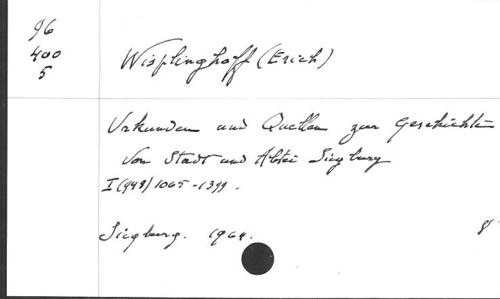 96
400
5
Wisplinghoff (Erich)
Urkunden und Quellen zur Geschichte
von Stadt und Abtei Siegburg
I (948) 1065-1399.
Siegburg. 1964.
8